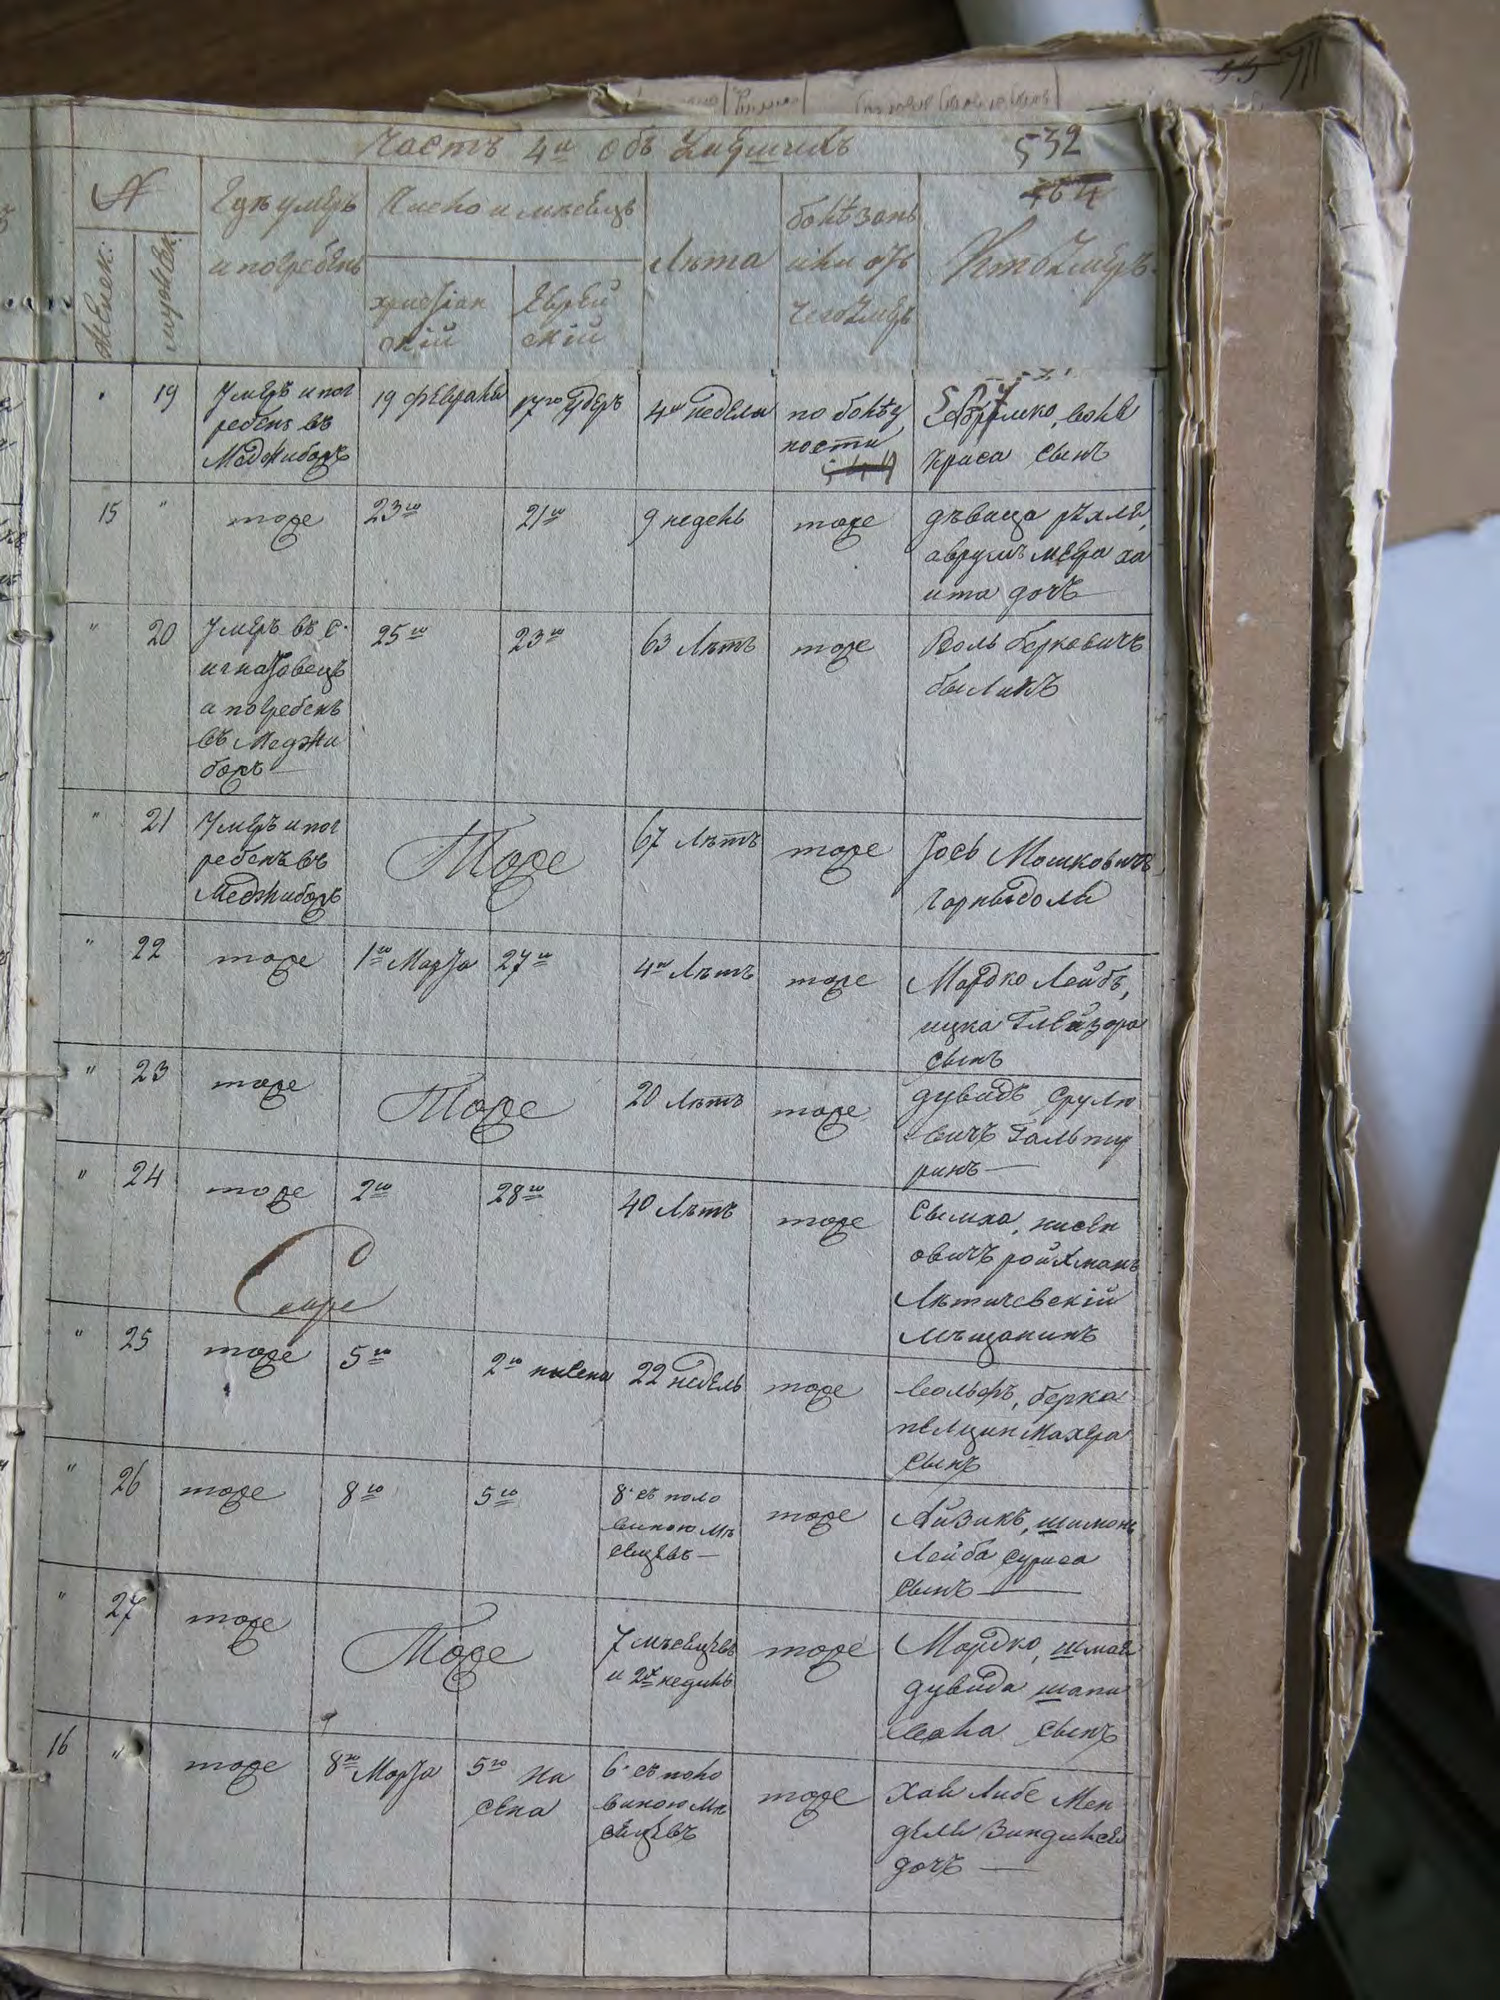 Часть 4я Объ Умершихъ
532
№
женск:
мужеск:
Где умеръ
и погребенъ
Число и месецъ
христіан
скій
Еврей
скій
Лѣта
болѣзань
или отъ
чего умеръ
Кто умеръ
19
умеръ и пог
ребенъ въ
Меджибожъ
19 февраля
17го
4и недели
по болѣз
ности
сынъ
15 "
тоже
23го
21го
9 недель
тоже
дѣвица рѣхля,
аврумъ меера ха
ита дочъ
" 20
умеръ въ с.
игнатовецъ
а погребенъ
въ Меджи
божъ
25го
23го
63 Лѣтъ
тоже
Воль берковичъ
быликъ
" 21
умеръ и пог
ребенъ въ
Меджибожъ
Тоже
67 Лѣтъ
тоже
Іось Мошковичъ
" 22
тоже
1го Марта
27го
4и Лѣтъ
тоже
Мордко Лейбъ,
ицка Глейзора
сынъ
" 23
тоже
Тоже
20 Лѣтъ
тоже
дувидъ срулю
вичъ Гальпу
ринъ
" 24
тоже
2го
28го
40 Лѣтъ
тоже
Сымха, нисен
овичъ ройхманъ
Лѣтичевскій
мѣщанинъ
" 25
тоже
5го
2го нысена
22 недель
тоже
Вольфъ, берка
сынъ
" 26
тоже
8го
5го
8. съ поло
виною мѣ
сецевъ
тоже
Айзикъ, шимона
Лейба суриса
сынъ
" 27
тоже
Тоже
7 мѣсецевъ
и 2х недель
тоже
Мордко, шмаи
дувида шапи
сынъ
16 "
тоже
8го Марта
5го на
сена
6. съ поло
виною мѣ
сецевъ
тоже
хая либе Мен
дели
дочъ